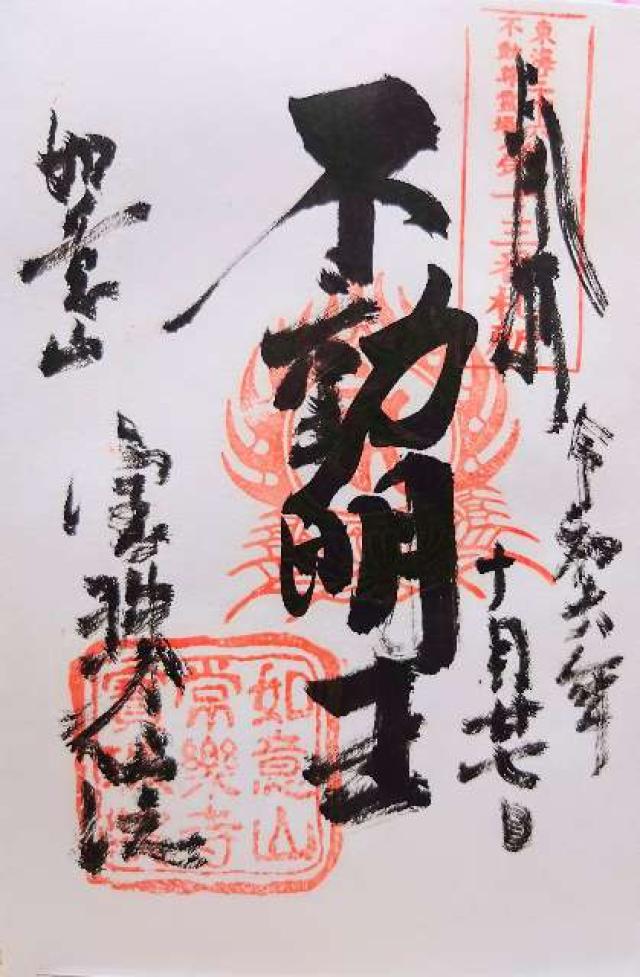 東海三十六
不動尊霊場第一三番札所
令和六年
十月廿七日
不動明王
如意山
如意山
常樂寺
寶珠院